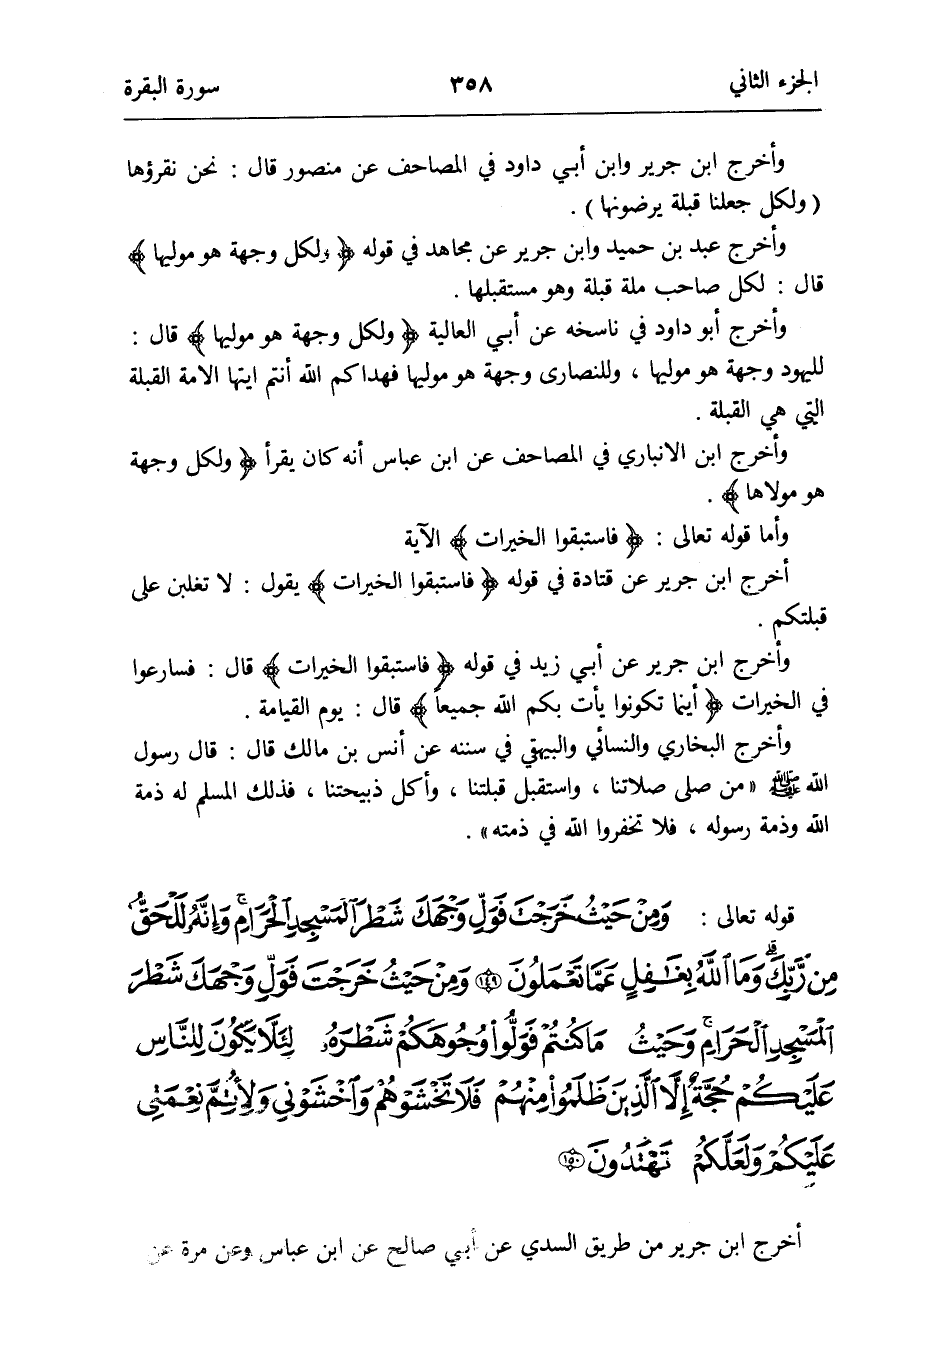 الجزء الثاني ٣٥٨ سورة البقرة
وأخرج ابن جرير وابن أبـي داود في المصاحف عن منصور قال : نحن نقرؤها
( ولكل جعلنا قبلة يرضونها ) .
وأخرج عبد بن حميد وابن جرير عن مجاهد في قوله ﴿ ولكل وجهة هو موليها ﴾
قال : لكل صاحب ملة قبلة وهو مستقبلها .
وأخرج أبو داود في ناسخه عن أبـي العالية ﴿ ولكل وجهة هو موليها ﴾ قال :
لليهود وجهة هو موليها ، وللنصارى وجهة هو موليها فهداكم الله أنتم ايتها الامة القبلة
التي هي القبلة .
وأخرج ابن الانباري في المصاحف عن ابن عباس أنه كان يقرأ ﴿ ولكل وجهة
هو مولاها ﴾ .
وأما قوله تعالى : ﴿ فاستبقوا الخيرات ﴾ الآية
أخرج ابن جرير عن قتادة في قوله ﴿ فاستبقوا الخيرات ﴾ يقول : لا تغلبن على
قبلتكم .
وأخرج ابن جرير عن أبـي زيد في قوله ﴿ فاستبقوا الخيرات ﴾ قال : فسارعوا
في الخيرات ﴿ أينما تكونوا يأت بكم الله جميعاً ﴾ قال : يوم القيامة .
وأخرج البخاري والنسائي والبيهقي في سننه عن أنس بن مالك قال : قال رسول
الله ﷺ «من صلى صلاتنا ، واستقبل قبلتنا ، وأكل ذبيحتنا ، فذلك المسلم له ذمة
الله وذمة رسوله ، فلا تخفروا الله في ذمته» .
قوله تعالى : وَمِنْ حَيْثُ خَرَجْتَ فَوَلِّ وَجْهَكَ شَطْرَ ٱلْمَسْجِدِ ٱلْحَرَامِ ۖ وَإِنَّهُۥ لَلْحَقُّ
مِن رَّبِّكَ ۗ وَمَا ٱللَّهُ بِغَـٰفِلٍ عَمَّا تَعْمَلُونَ ۝١٤٩ وَمِنْ حَيْثُ خَرَجْتَ فَوَلِّ وَجْهَكَ شَطْرَ
ٱلْمَسْجِدِ ٱلْحَرَامِ ۚ وَحَيْثُ مَا كُنتُمْ فَوَلُّوا۟ وُجُوهَكُمْ شَطْرَهُۥ لِئَلَّا يَكُونَ لِلنَّاسِ
عَلَيْكُمْ حُجَّةٌ إِلَّا ٱلَّذِينَ ظَلَمُوا۟ مِنْهُمْ فَلَا تَخْشَوْهُمْ وَٱخْشَوْنِي وَلِأُتِمَّ نِعْمَتِي
عَلَيْكُمْ وَلَعَلَّكُمْ تَهْتَدُونَ ۝١٥٠
أخرج ابن جرير من طريق السدي عن أبـي صالح عن ابن عباس وعن مرة عن